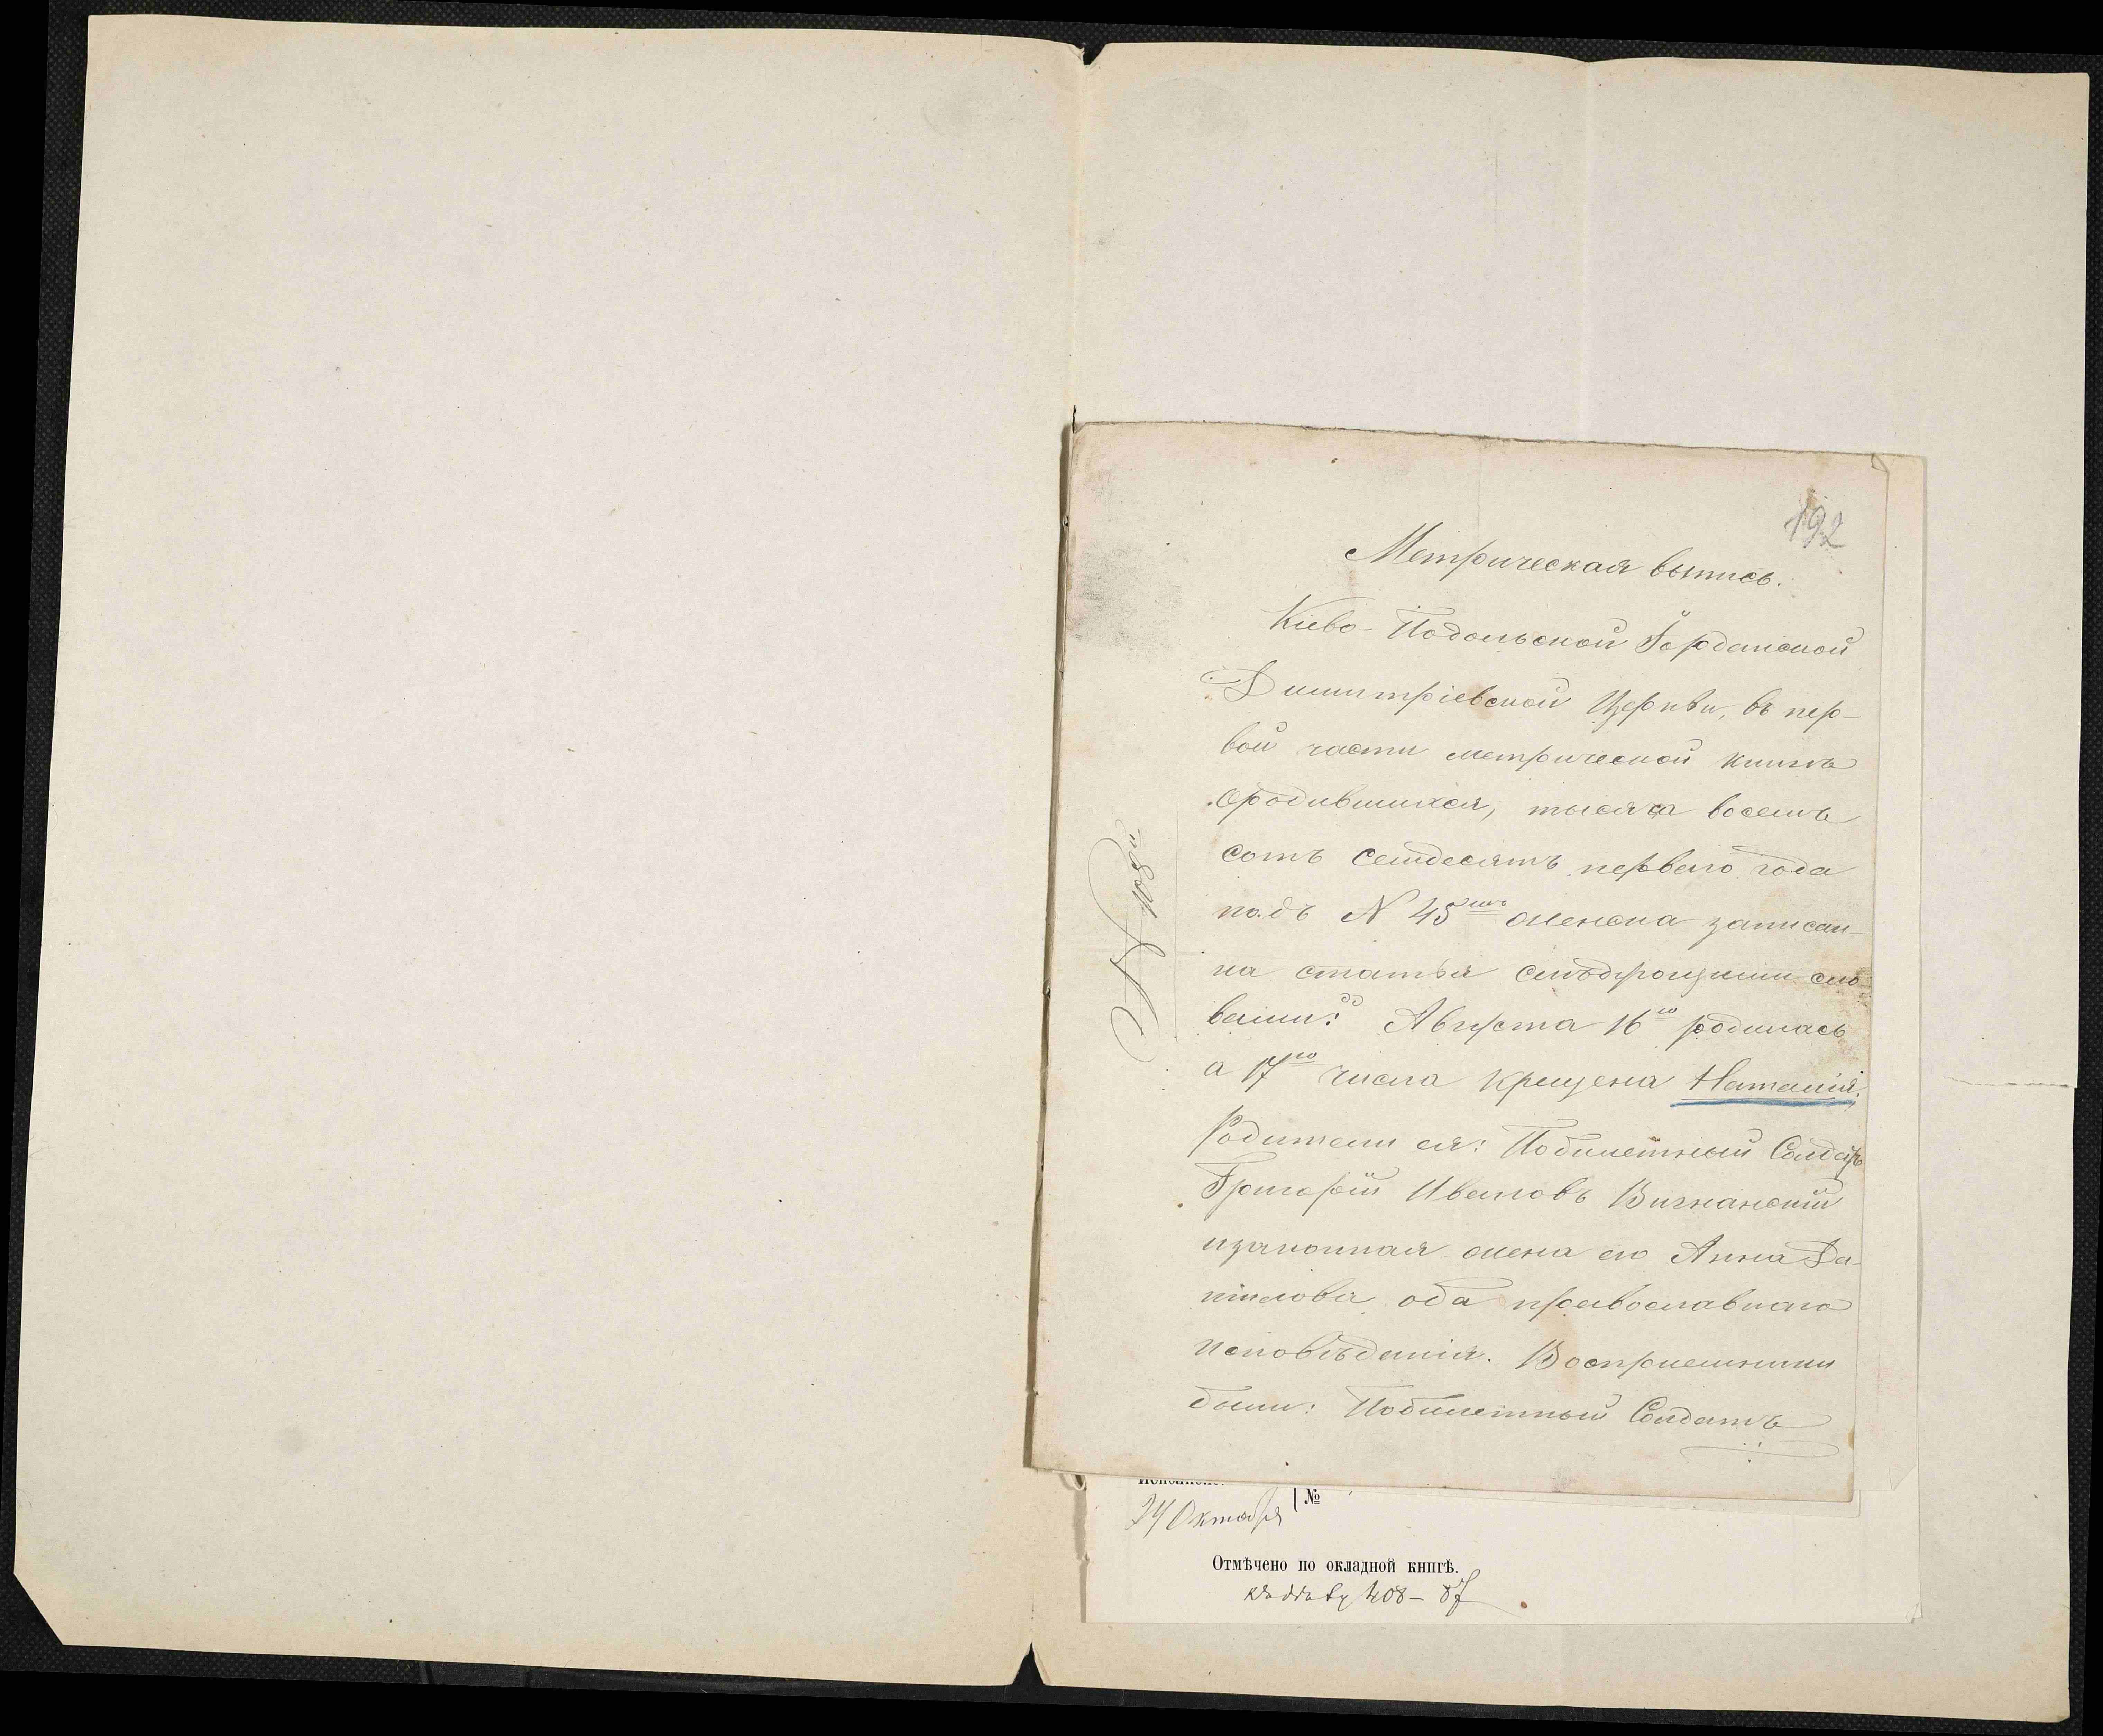 192
Метрическая выпись.
Кіево-Подольской Іорданской
Димитріевской Церкви, въ пер-
вой части метрической книгѣ
ородившихся, тысяча восемъ
сотъ семдесятъ первого года
подъ N 45мъ женска записан-
на статья слѣдующими сло-
вами: Августа 16го родилась
а 17го числа крещена Наталія.
Родители ея: Побилетный Солдатъ
Григорій Ивановъ Вигнанскій
изаконная жена его Анна Да-
нилова оба православнаго
исповѣданія. Восприемники
были: Побилетный Солдатъ
24 Октября №
Отмѣчено по окладной книгѣ.
408 – 87